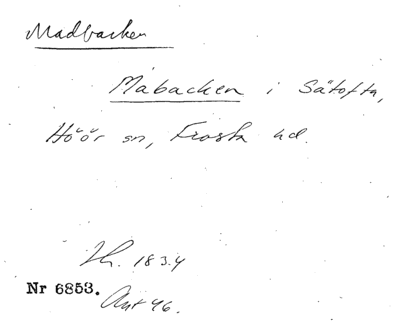 Madbacken
Mabacken i Sätofta,
Höör sn, Frosta hd.
183.4
Nr 6853.
Ant 46.